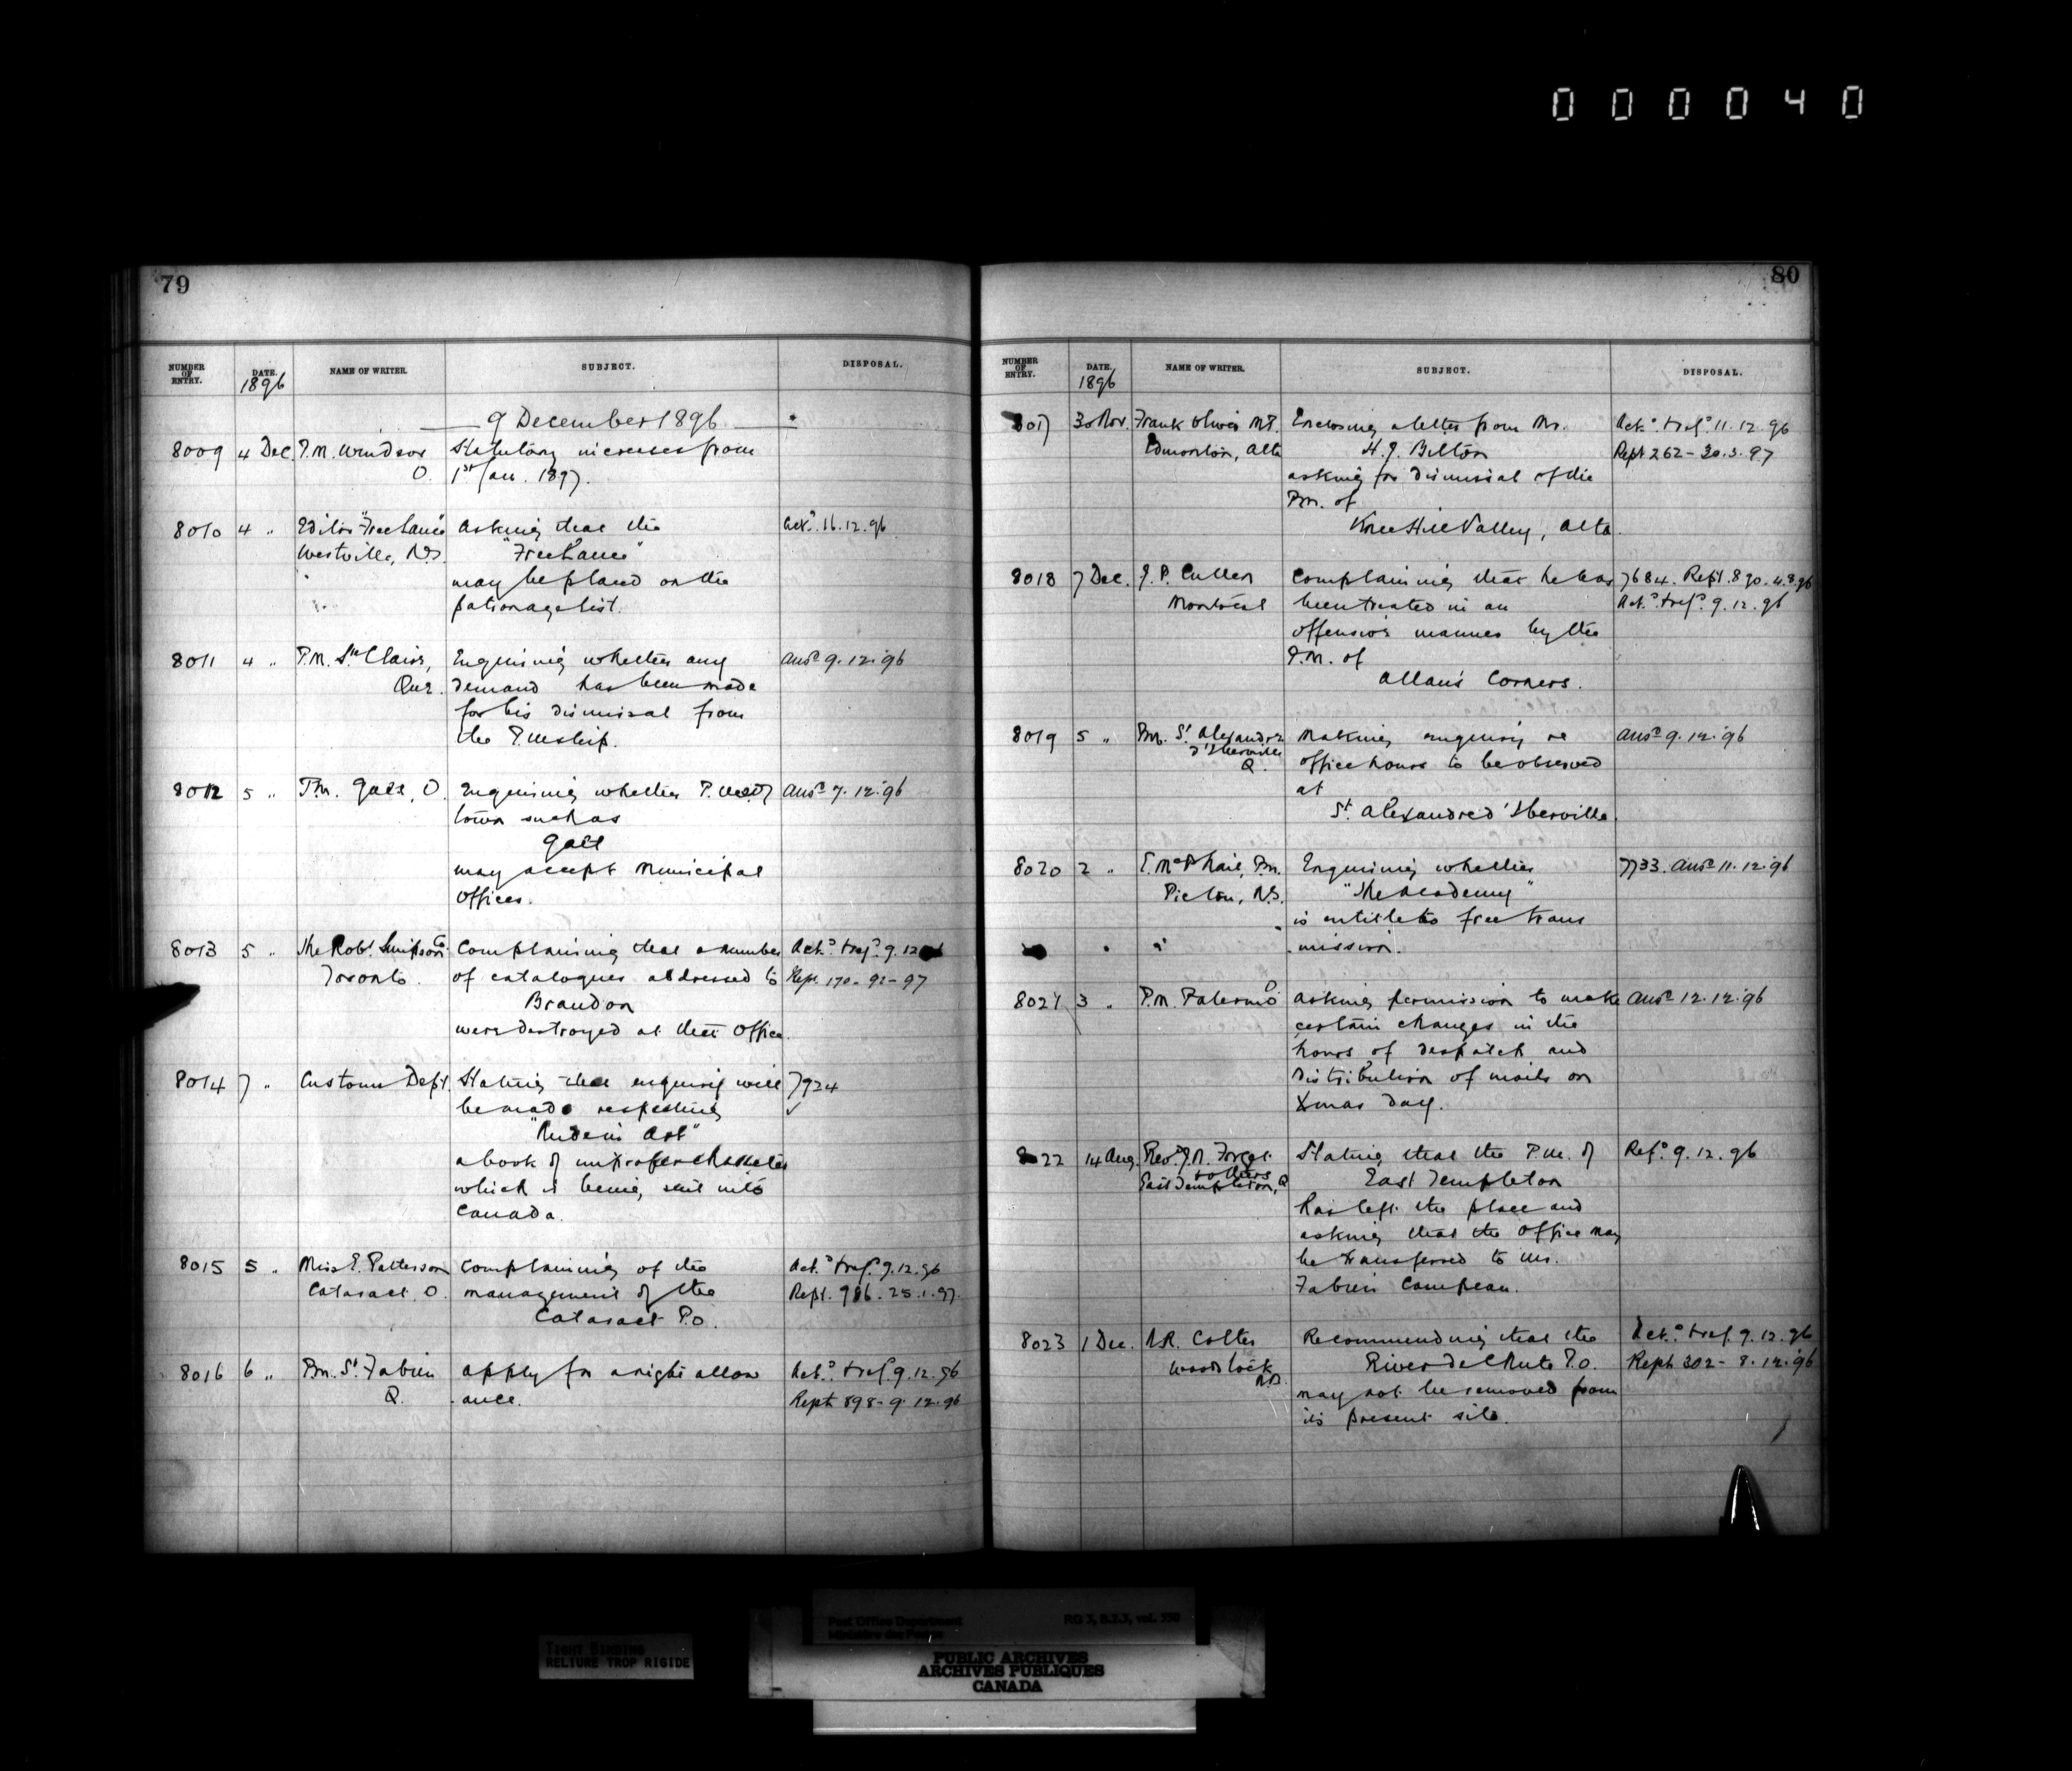 000040
79
NUMBER OF ENTRY.
DATE.
1896
NAME OF WRITER.
SUBJECT.
DISPOSAL.
9 December 1896
8009 4 Dec P.M. Windsor Statutory increases from
O. 1st Jan. 1897.
8010 4 " Editor "Free Lance" Asking that the Ackd. 16.12.96
Westville, N.S. "Free Lance"
may be placed on the
patronage list.
8011 4 " P.M. Ste Claire, Enquiring whether any Ansd 9.12.96
Que. demand has been made
for his dismissal from
the P.mship.
8012 5 " P.m. Galt, O. Enquiring whether P.m. of Ansd 7.12.96
town such as
Galt
may accept Municipal
Offices.
8013 5 " The Robt. Simpson Co. Complaining that a number Ackd. & refd. 9.12
Toronto. of catalogues addressed to Rept. 170 - 92-97
Brandon
were destroyed at that Office.
8014 7 " Customs Dept. Stating that enquiry will 7924
be made respecting ✓
"Rudeni Art"
a book of improper character
which is being sent into
Canada.
8015 5 " Miss E. Patterson Complaining of the Ackd. & refd. 9.12.96
Cataract, O. management of the Rept. 986. 25.1.97.
Cataract P.O.
8016 6 " P.m. St. Fabien Apply for a night allow Ackd. & refd. 9.12.96
Q. -ance. Rept 898 - 9.12.96
80
NUMBER OF ENTRY.
DATE.
1896
NAME OF WRITER.
SUBJECT.
DISPOSAL.
8017 30 Nov. Frank Oliver M.P. Enclosing a letter from Mr. Ackd. & refd. 11.12.96
Edmonton, Alta H.J. Bilton Rept 262 - 30.3.97
asking for dismissal of the
P.m. of
Knee Hill Valley, Alta.
8018 7 Dec. J.P. Cullen Complaining that he has 7684. Rept. 890. 4.8.96
Montreal been treated in an Ackd. & refd. 9.12.96
offensive manner by the
P.M. of
Allan's Corners.
8019 5 " P.m. St. Alexandre Making enquiry re Ansd 9.12.96
d'Iberville office hours to be observed
Q. at
St. Alexandre d'Iberville.
8020 2 " E. McPhail, P.m. Enquiring whether 7733. Ansd 11.12.96
Pictou, N.S. "The Academy"
is entitled to free trans
" -mission.
8021 3 " P.M. Palermo O Asking permission to make Ansd 12.12.96
certain changes in the
hours of despatch and
distribution of mails on
Xmas day.
8022 14 Aug. Revd. J.N. Forget Stating that the P.m. of Refd. 9.12.96
& others East Templeton
East Templeton, Q has left the place and
asking that the Office may
be transferred to Mr.
Fabien Campeau.
8023 1 Dec. N.R. Colter Recommending that the Ackd. & ref. 9.12.96
Woodstock River de Chute P.O. Rept 302 - 8.12.96
N.B. may not be removed from
its present site.
Post Office Department RG 3, B.2.3, vol. 550
Ministère des Postes
TIGHT BINDING
RELIURE TROP RIGIDE
PUBLIC ARCHIVES
ARCHIVES PUBLIQUES
CANADA